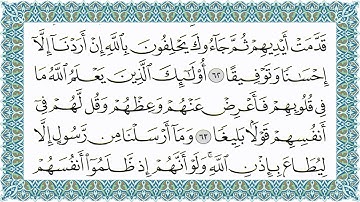 قَدَّمَتْ أَيْدِيهِمْ ثُمَّ جَآءُوكَ يَحْلِفُونَ بِٱللَّهِ إِنْ أَرَدْنَآ إِلَّآ
إِحْسَٰنًا وَتَوْفِيقًا ٦٢ أُو۟لَٰٓئِكَ ٱلَّذِينَ يَعْلَمُ ٱللَّهُ مَا
فِى قُلُوبِهِمْ فَأَعْرِضْ عَنْهُمْ وَعِظْهُمْ وَقُل لَّهُمْ فِىٓ
أَنفُسِهِمْ قَوْلًۢا بَلِيغًا ٦٣ وَمَآ أَرْسَلْنَا مِن رَّسُولٍ إِلَّا
لِيُطَاعَ بِإِذْنِ ٱللَّهِ ۚ وَلَوْ أَنَّهُمْ إِذ ظَّلَمُوٓا۟ أَنفُسَهُمْ